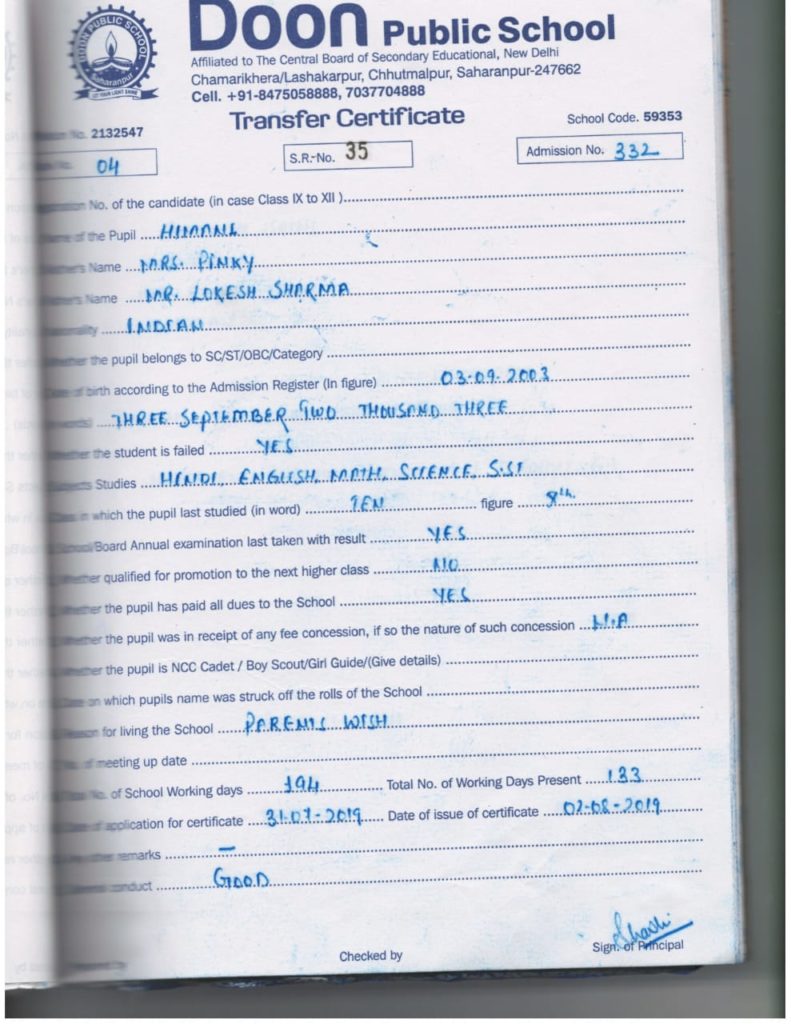 DOON PUBLIC SCHOOL
Saharanpur
LET YOUR LIGHT SHINE
Doon Public School
Affiliated to The Central Board of Secondary Educational, New Delhi
Chamarikhera/Lashakarpur, Chhutmalpur, Saharanpur-247662
Cell. +91-8475058888, 7037704888
Transfer Certificate
School Code. 59353
No. 2132547
No. 04
S.R.-No. 35
Admission No. 332
No. of the candidate (in case Class IX to XII )
of the Pupil HIMANI
Name MRS. PINKY
Name MR. LOKESH SHARMA
INDIAN
the pupil belongs to SC/ST/OBC/Category
of birth according to the Admission Register (In figure) 03-09-2003
THREE SEPTEMBER TWO THOUSAND THREE
the student is failed YES
Studies HINDI, ENGLISH, MATH, SCIENCE, S.ST
in which the pupil last studied (in word) TEN figure
School/Board Annual examination last taken with result YES
Whether qualified for promotion to the next higher class NO
Whether the pupil has paid all dues to the School YES
Whether the pupil was in receipt of any fee concession, if so the nature of such concession N.A
Whether the pupil is NCC Cadet / Boy Scout/Girl Guide/(Give details)
Date on which pupils name was struck off the rolls of the School
Reason for living the School PARENTS WISH
of meeting up date
No. of School Working days 194 Total No. of Working Days Present 133
of application for certificate 31-07-2019 Date of issue of certificate 02-08-2019
other remarks –
conduct GOOD
Checked by
Sign. of Principal